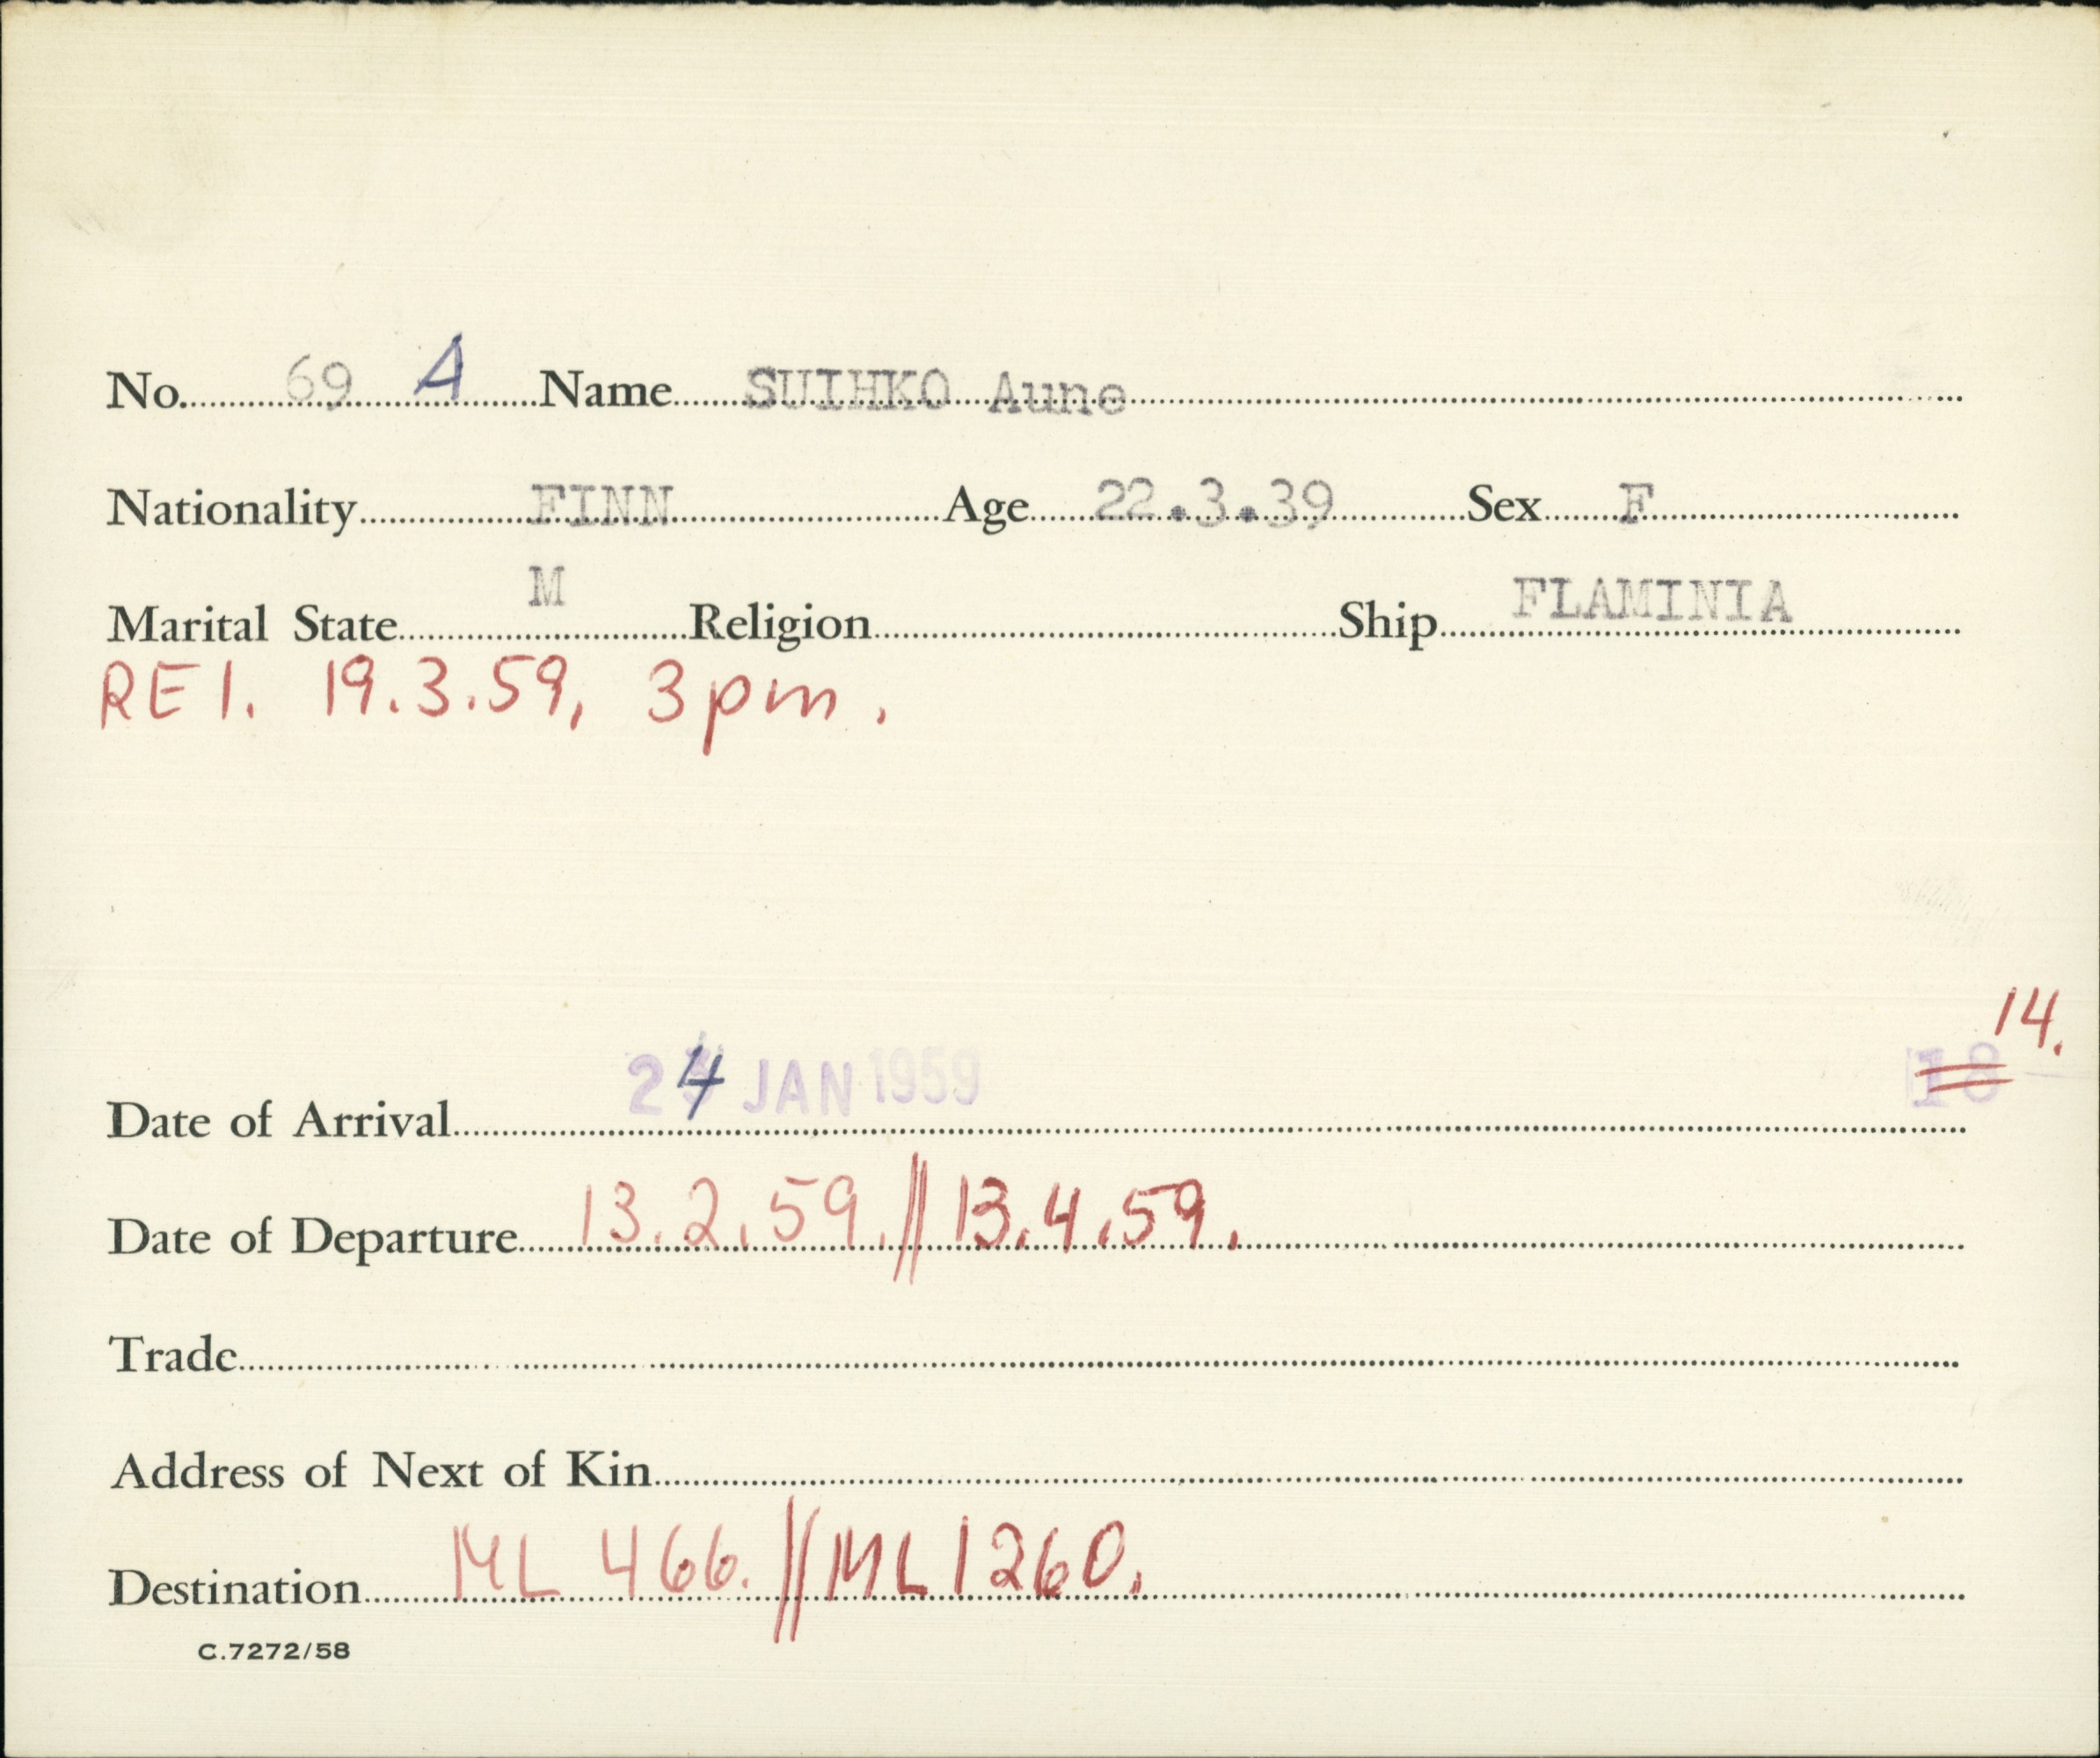 No. 69 A Name SUIHKO Aune
Nationality FINN Age 22.3.39 Sex F
Marital State M Religion Ship FLAMINIA
REI. 19.3.59, 3pm.
14.
Date of Arrival 24 JAN 1959 18
Date of Departure 13.2.59. // 13.4.59.
Trade
Address of Next of Kin
Destination ML 466. // ML 1260.
C.7272/58